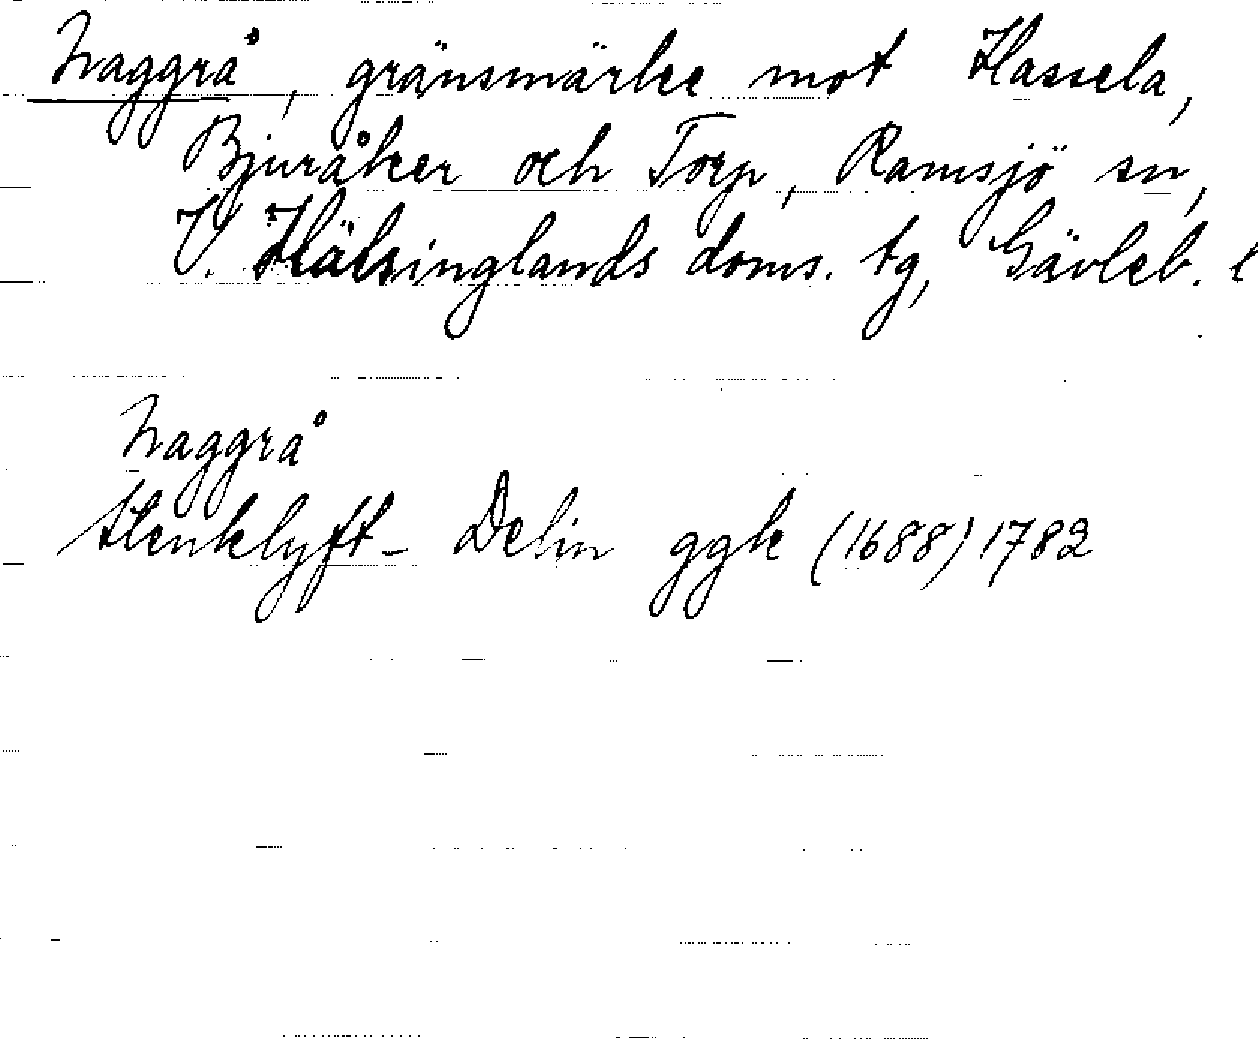 Naggrå, gränsmärke mot Hassela,
Bjuråker och Torp, Ramsjö sn,
V. Hälsinglands doms. tg, Gävleb. l
Naggrå
Stenklyft- Delin ggk (1688) 1782